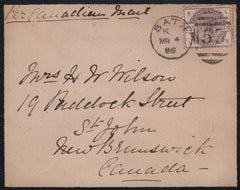 Per Canadian Mail
BATH
K
MR 4
86
53
Mrs H W Wilson
19 Paddock Street
St John
New Brunswick
Canada